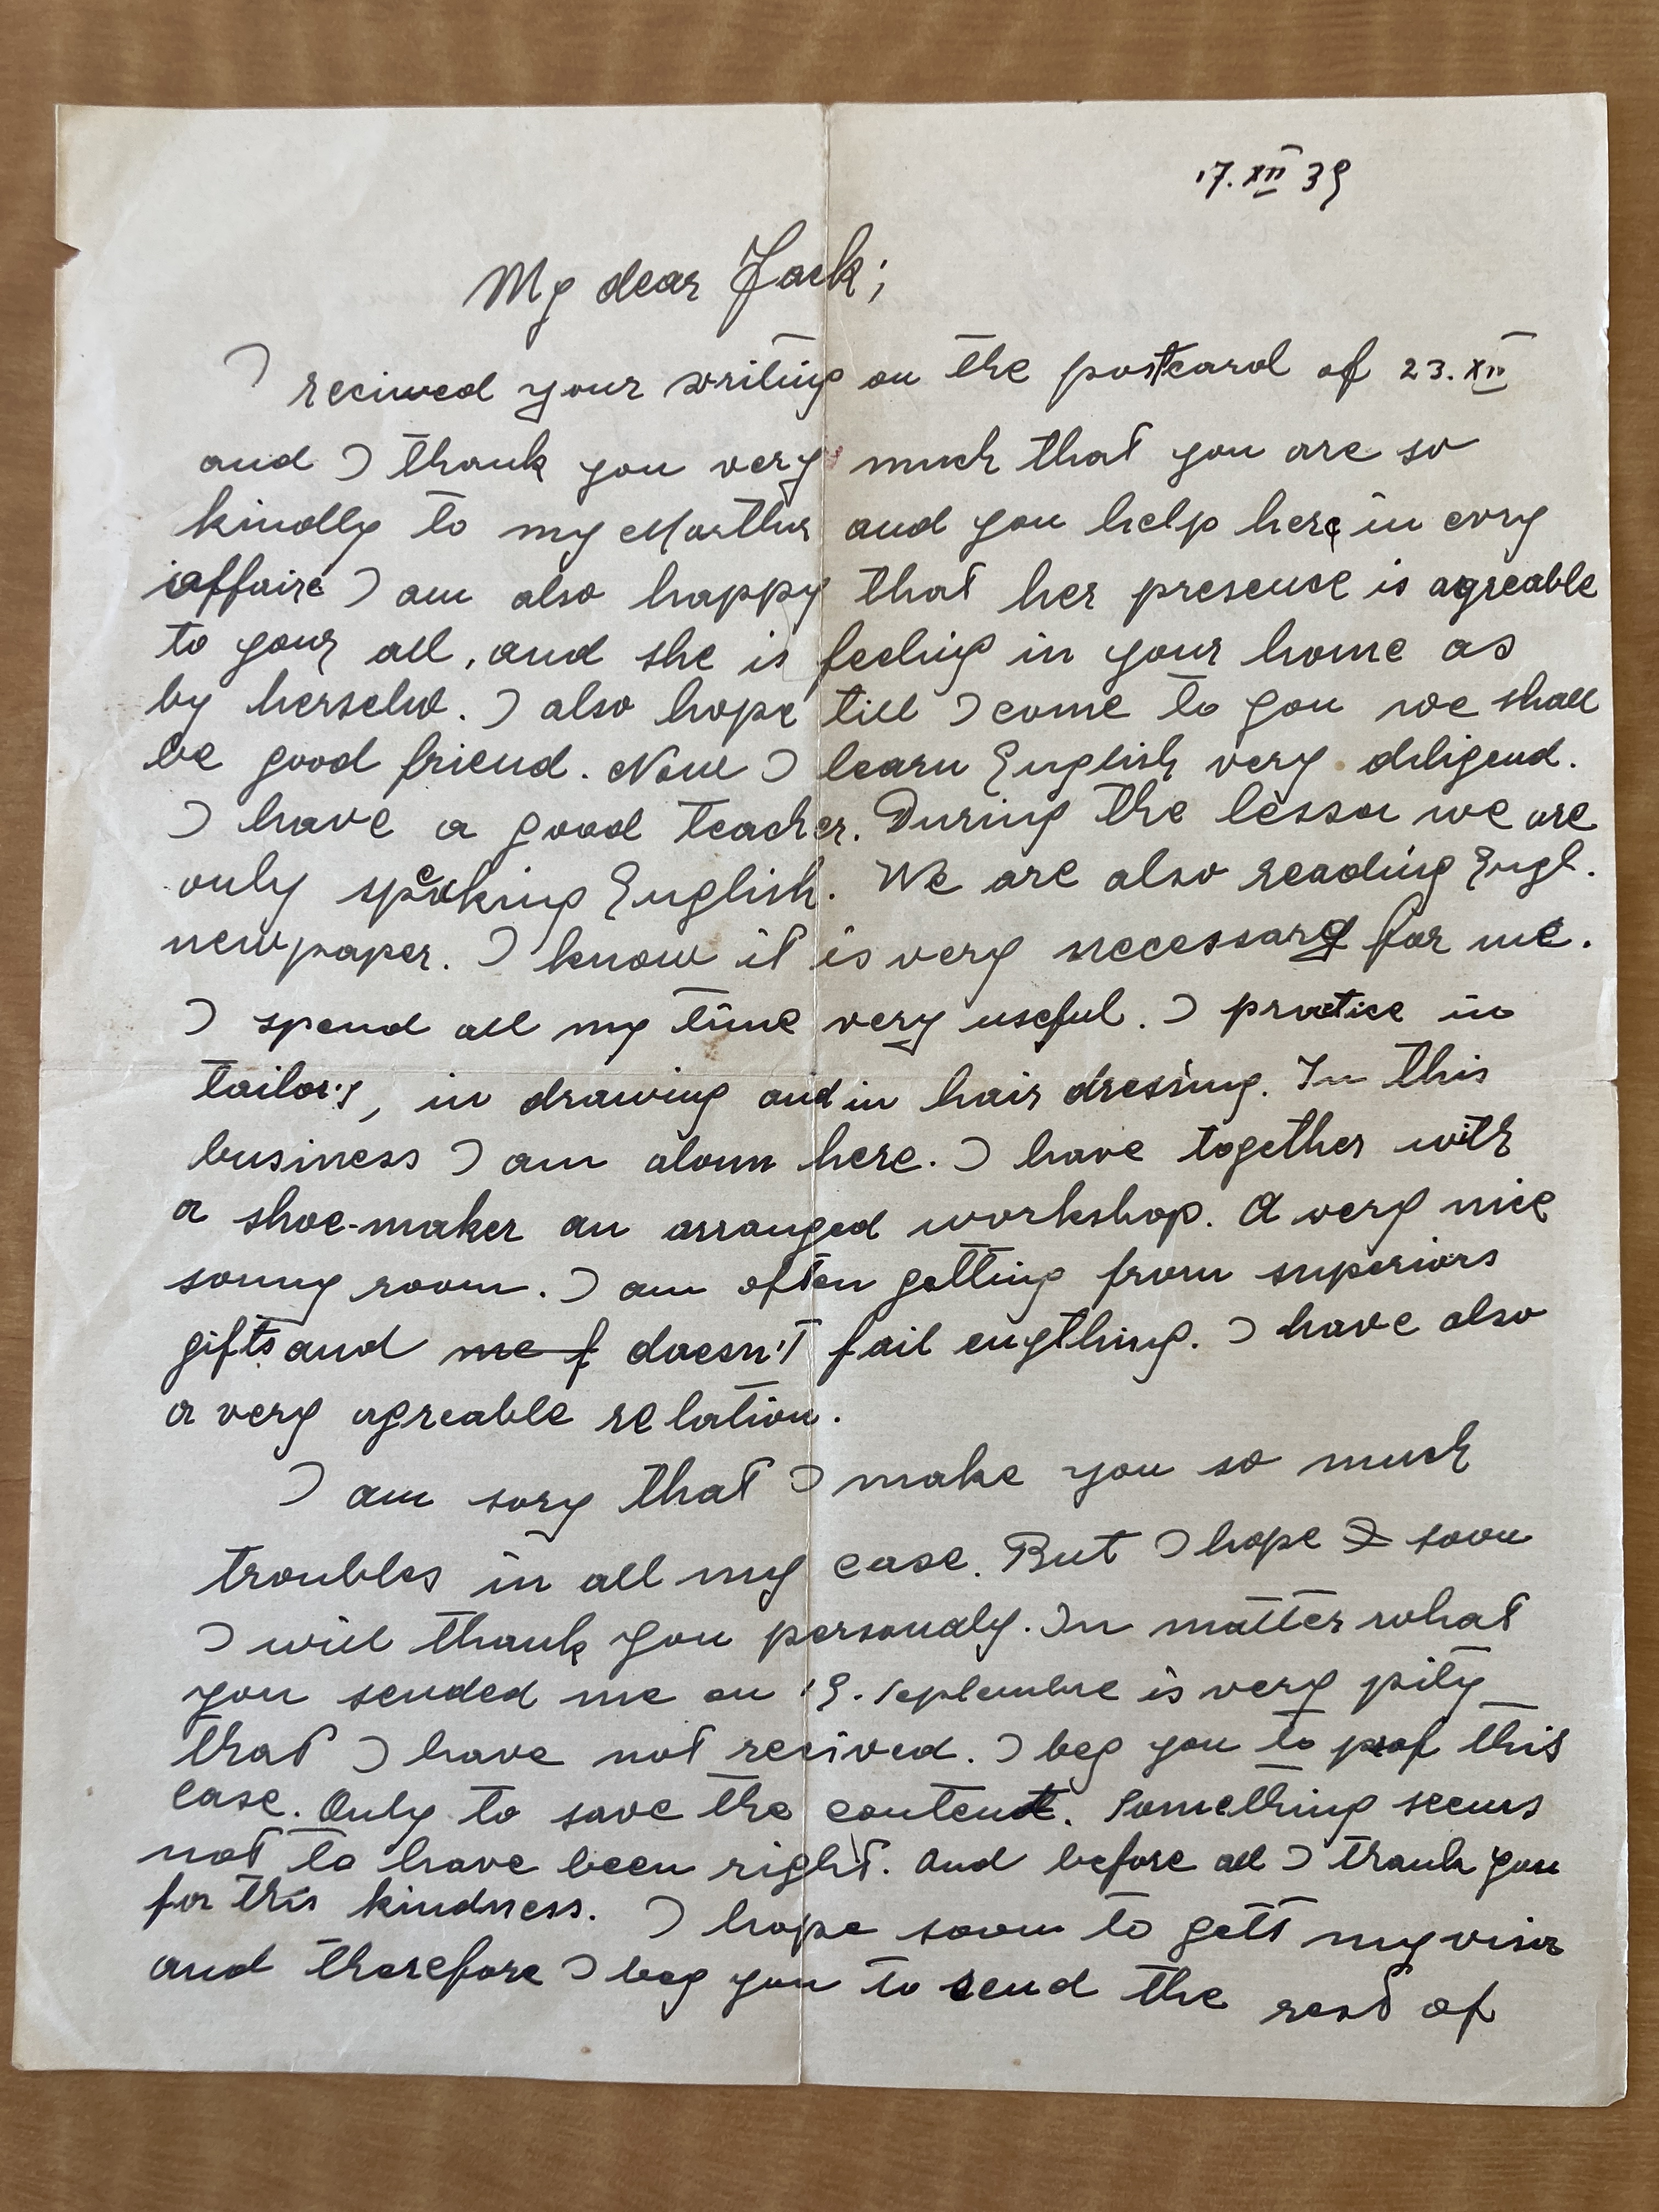 17. XII 39
My dear Jack;
I reciwed your writing on the postcard of 23. XII
and I thank you very much that you are so
kindly to my Marthu and you help here in evry
affaire I am also happy that her presense is agreable
to your all, and she is feeling in your home as
by herselw. I also hope till I come to you we shall
be good friend. Now I learn English very diligend.
I have a good teacher. During the lesson we are
only speaking English. We are also reading Engl.
newpaper. I know it is very necessary for me.
I spend all my time very useful. I practice in
tailory, in drawing and in hair dressing. In this
business I am alonn here. I have together with
a shoe-maker an arranged workshop. A very nice
sonny room. I am often getting from superiors
gifts and me f doesn't fail engthing. I have also
a very agreable relation.
I am sory that I make you so much
troubles in all my case. But I hope I soon
I will thank you personaly. In matter what
you sended me on 19. Septembre is very pity
that I have not recived. I beg you to prof this
case. Only to save the content. Something seems
not to have been right. And before all I thank you
for this kindness. I hope soon to gett my visa
and therefore I beg you to send the rest of